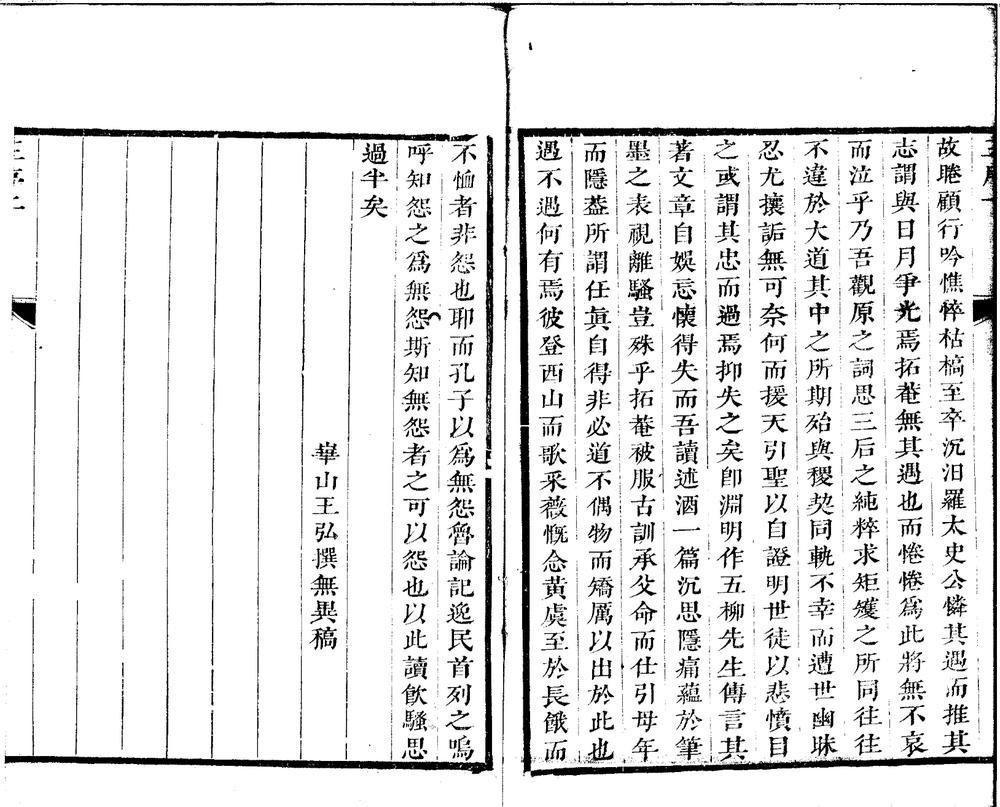 故睠顧行吟憔悴枯槁至卒沉汨羅太史公憐其遇而推其
志謂與日月爭光焉拓菴無其遇也而惓惓爲此將無不哀
而泣乎乃吾觀原之詞思三后之純粹求矩矱之所同往往
不違於大道其中之所期殆與稷契同軌不幸而遭世幽昧
忍尤攘詬無可奈何而援天引聖以自證明世徒以悲憤目
之或謂其忠而過焉抑失之矣卽淵明作五柳先生傳言其
著文章自娛忘懷得失而吾讀述酒一篇沉思隱痛蘊於筆
墨之表視離騷豈殊乎拓菴被服古訓承父命而仕引母年
而隱葢所謂任眞自得非必道不偶物而矯厲以出於此也
遇不遇何有焉彼登西山而歌采薇慨念黃虞至於長餓而
不恤者非怨也耶而孔子以爲無怨魯論記逸民首列之嗚
呼知怨之爲無怨斯知無怨者之可以怨也以此讀飲騷思
過半矣
崋山王弘撰無異稿
王序二